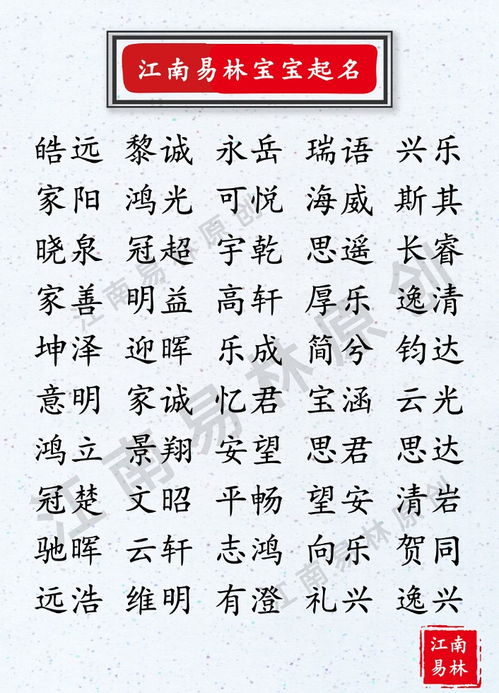 江南易林宝宝起名
皓远 黎诚 永岳 瑞语 兴乐
家阳 鸿光 可悦 海威 斯其
晓泉 冠超 宇乾 思遥 长睿
家善 明益 高轩 厚乐 逸清
坤泽 迎晖 乐成 简兮 钧达
意明 家诚 忆君 宝涵 云光
鸿立 景翔 安望 思君 思达
冠楚 文昭 平畅 望安 清岩
驰晖 云轩 志鸿 向乐 贺同
远浩 维明 有澄 礼兴 逸兴
江南易林原创
江南易林原创
江南易林原创
江南
易林